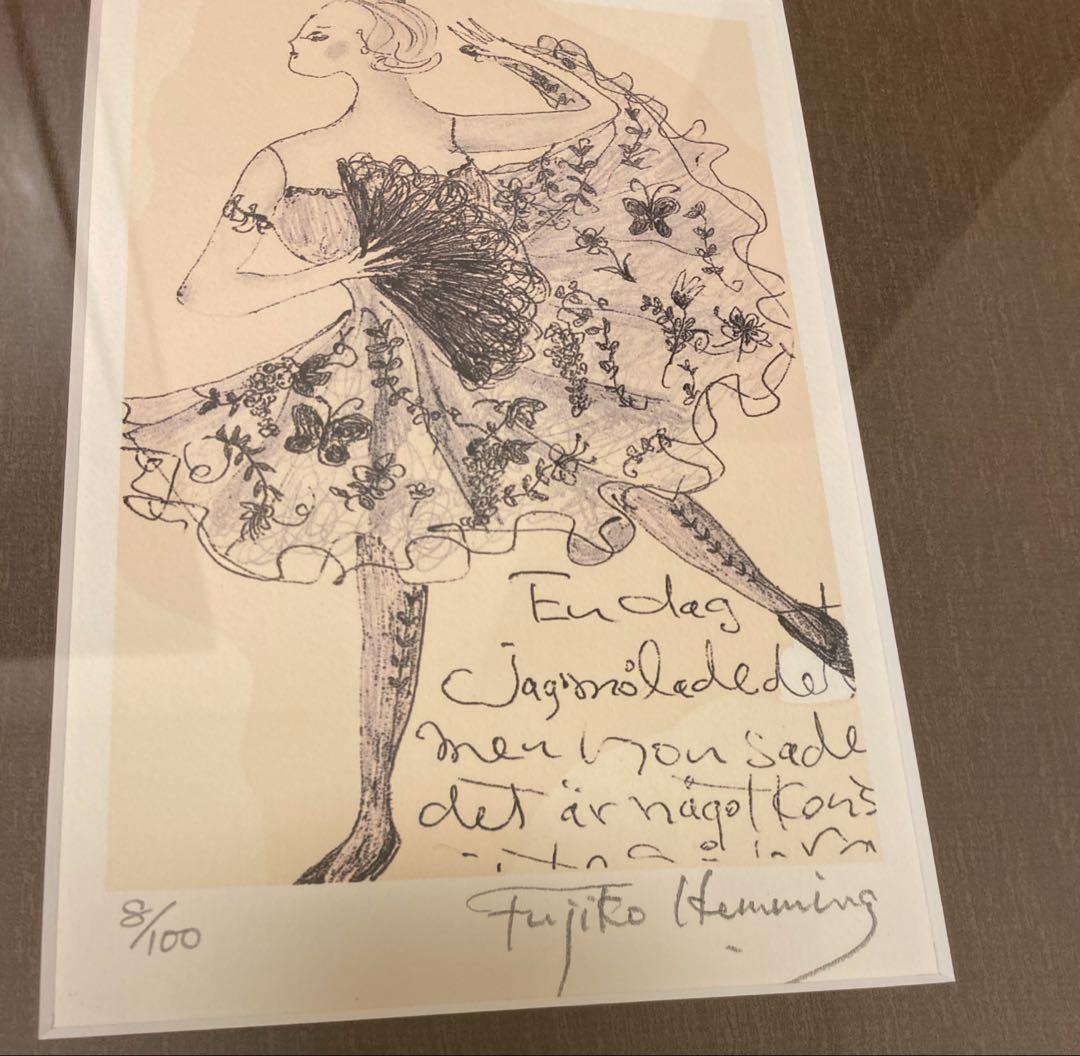 En dag
Jag målade det
men hon sade
det är något Kons
8/100
Fujiko Hemming